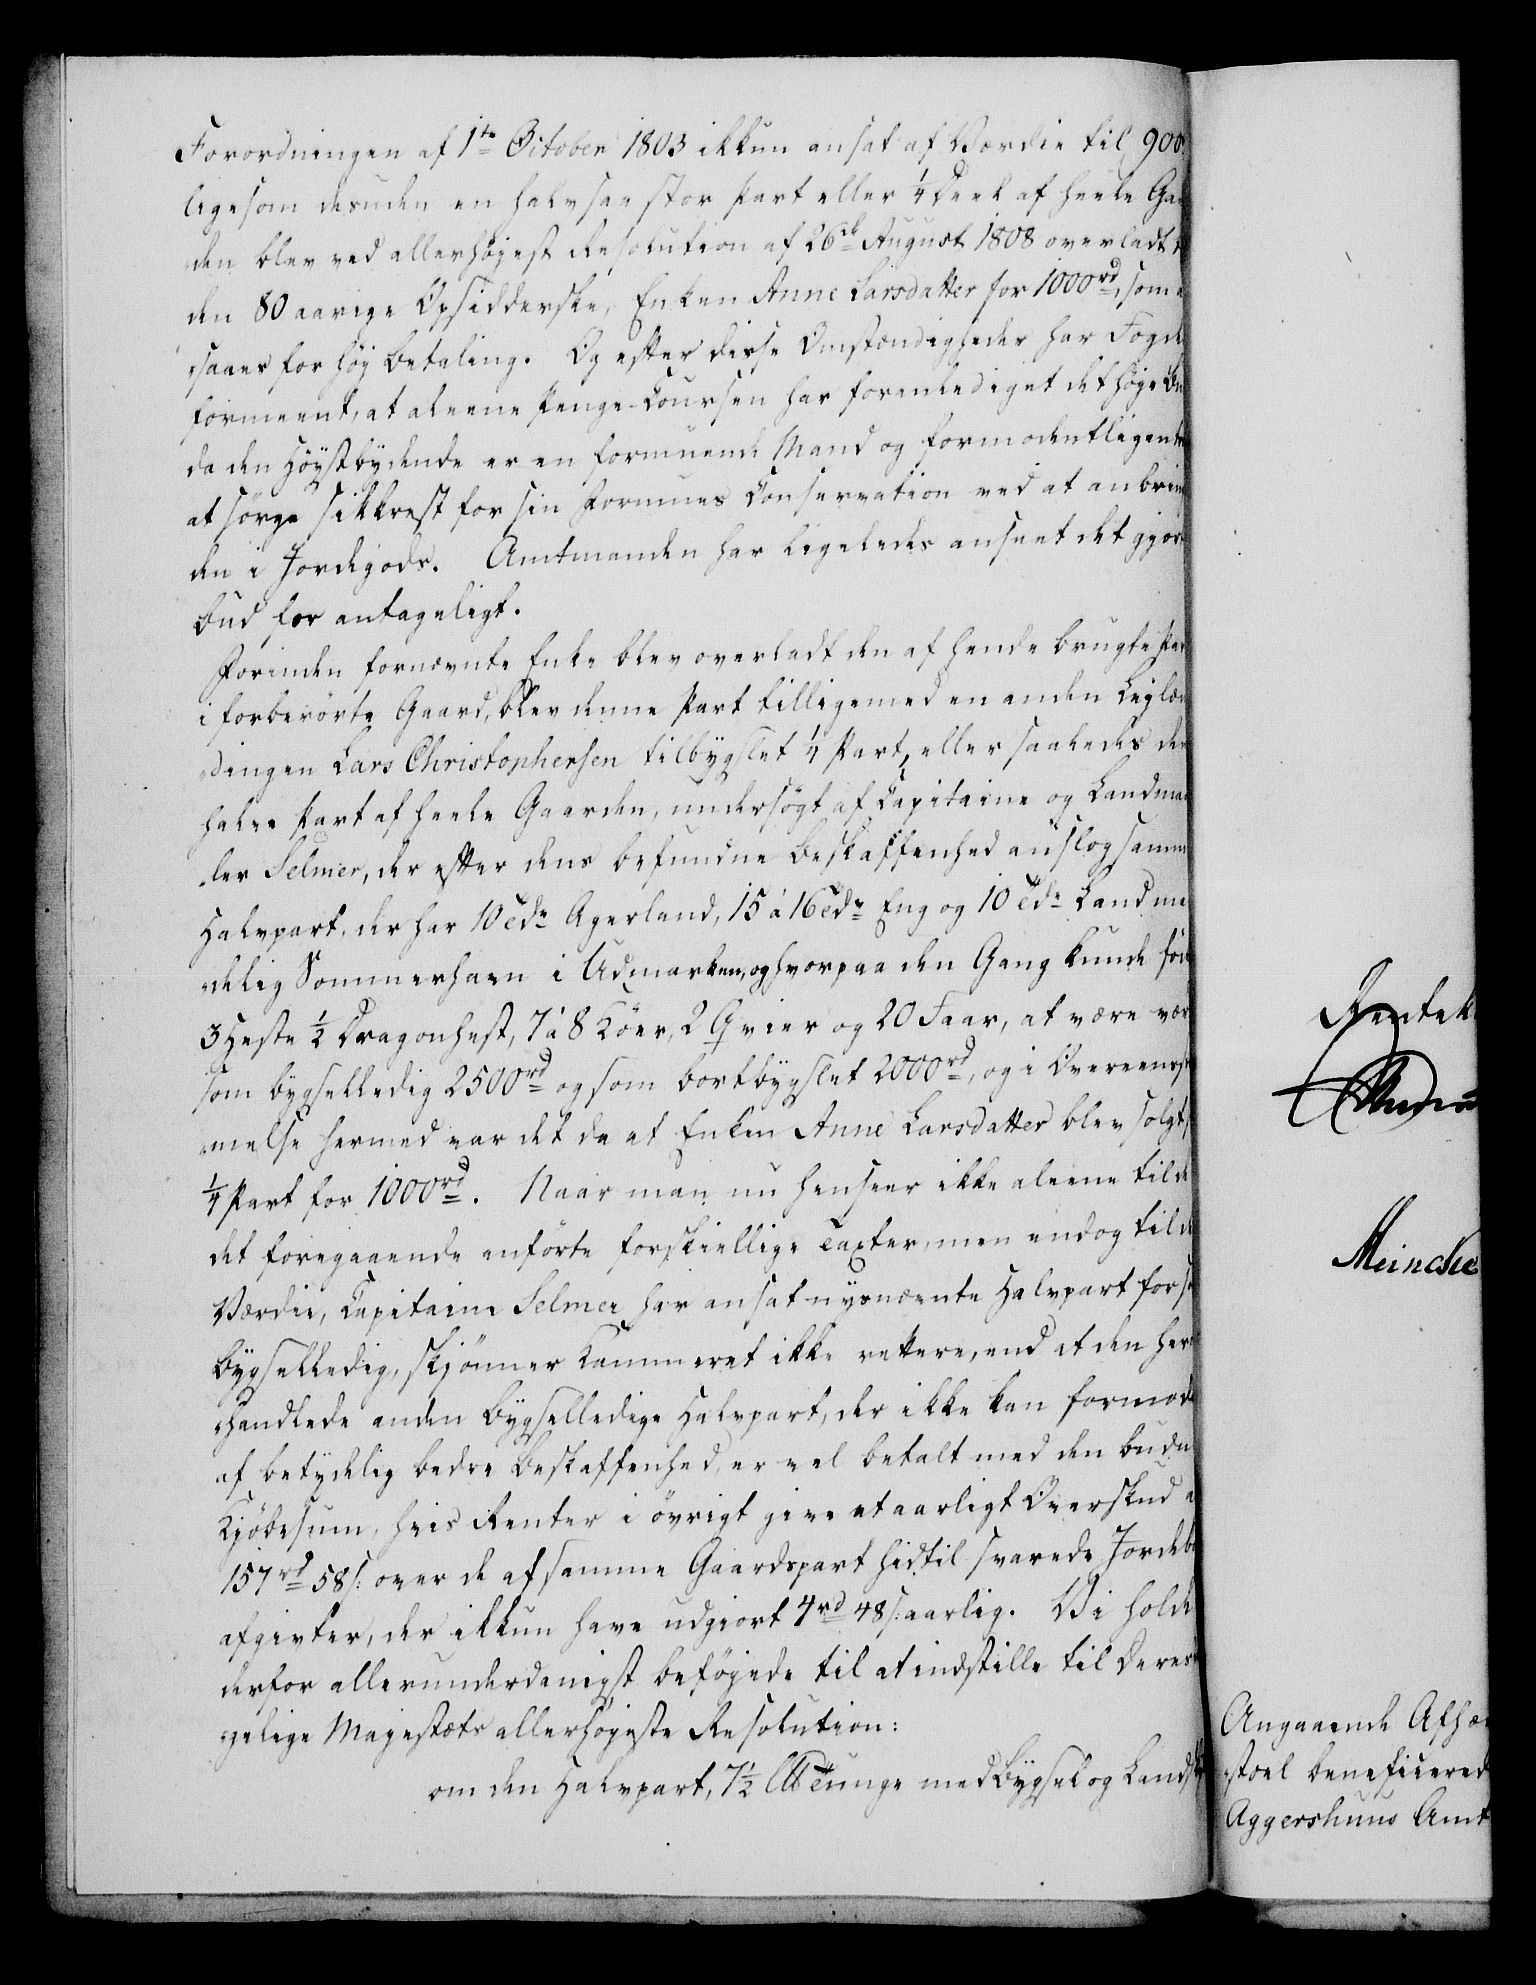 Forordningen af 1te October 1803 ikkun ansat af Værdie til 900
ligesom desuden en halvsaa stor Part eller 1/4 Deel af heele Gaa
den blev ved allerhøjest Resolution af 26de August 1808 overladt
den 80 aarige Opsidderske, Enken Anne Larsdatter for 1000rd, som
saaes for høj Betaling. Og efter disse Omstændigheder har Fogde
formeent, at aleene Penge-Coursen har foranlediget det høje Bu
da den Høystbydende er en formuende Mand og formodentligen
at sørge sikkrest for sin Formues Conservation ved at anbrin
den i Jordegods. Amtmanden har ligeledes anseet det gjor
Bud for antageligt.
Forinden fornævnte Enke blev overladt den af hende brugte Par
i forberørte Gaard, blev denne Part tilligemed en anden Leylæn
dingen Lars Christophersen tilbygslet 1/4 Part, eller saaledes den
halve Part af heele Gaarden, undersøgt af Capitaine og Landmaa
ler Selmer, der efter dens befundne Beskaffenhed anslog samme
Halvpart, der har 10 Tdr Agerland, 15 à 16 Tdr Eng og 10 Tdr Land maa
delig Sommerhavn i Udmarken, og hvorpaa den Gang kunde føde
3 Heste 1/2 Dragonhest, 7 à 8 Köer, 2 Qvier og 20 Faar, at være vær
som bygselledig 2500rd og som bortbygslet 2000rd, og i Overeenss
melse hermed var det da at Enken Anne Larsdatter blev solgt
1/4 Part for 1000rd. Naar man nu henseer ikke aleene til de
det foregaaende anførte forskiellige Taxter, men endog til de
Værdie, Capitaine Selmer har ansat nysnævnte Halvpart for s
bygselledig, skjønner Kammeret ikke rettere, end at den her
handlede anden bygselledige Halvpart, der ikke kan formode
af betydelig bedre Beskaffenhed, er vel betalt med den budne
Kjøbesum, hvis Renter i øvrigt give et aarligt Overskud a
157rd 58s. over de af samme Gaardspart hidtil svarede Jordeb
afgivter, der ikkun have udgiort 4rd 48s. aarlig. Vi holde
derfor allerunderdanigst beføjede til at indstille til Deres
gelige Majestæts allerhøjeste Resolution:
om den Halvpart, 7 1/2 Lb Tunge med Bygsel og Lands
Rentek
Meincke
Angaaende Afhæ
stoel beneficered
Aggershuus Amt